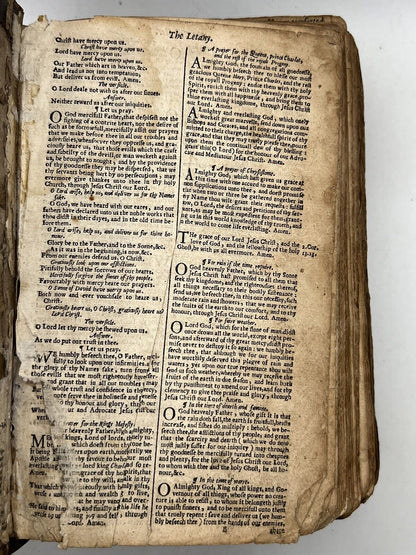 The Letany.
Christ have mercy upon us.
Christ have mercy upon us.
Lord have mercy upon us.
Our Father which art in heaven, &c.
And lead us not into temptation.
But deliver us from evill. Amen.
The versicle.
O Lord deale not with us after our sinnes.
Answer.
Neither reward us after our iniquities.
¶ Let us pray.
O God mercifull Father, that despisest not the
sighing of a contrite heart, nor the desire of
such as be sorrowfull, mercifully assist our prayers
that we make before thee in all our troubles and
adversities, whensoever they oppresse us, and graciously
heare us, that those evils which the craft
and subtilty of the devill, or man worketh against
us, be brought to nought, and by the providence
of thy goodnesse they may be dispersed, that we
thy servants being hurt by no persecutions, may
evermore give thankes unto thee in thy holy
Church, through Jesus Christ our Lord.
O Lord arise, help us, and deliver us for thy Names
sake.
O God, we have heard with our eares, and our
fathers have declared unto us the noble works that
thou didst in their dayes, and in the old time before
them.
O Lord arise, help us, and deliver us for thy honour.
Glory be to the Father, and to the Sonne, &c.
As it was in the beginning, is now, &c.
From our enemies defend us, O Christ.
Graciously look upon our afflictions.
Pitifully behold the sorrowes of our hearts.
Mercifully forgive the sinnes of thy people.
Favourably with mercy heare our prayers.
O Sonne of David have mercy upon us.
Both now and ever vouchsafe to heare us, O
Christ.
Graciously heare us, O Christ, graciously heare us
Lord Christ.
The versicle.
O Lord let thy mercy be shewed upon us.
Answer.
As we do put our trust in thee.
¶ Let us pray.
We humbly beseech thee, O Father, mercifully
to look upon our infirmities, and for
the glory of thy Names sake, turn from all
those evils that we most righteously
and grant that in all our troubles
whole trust and confidence in thy mercy,
more serve thee in holinesse and
to thy honour and glory, through our
Mediatour and Advocate Jesus Christ our
Amen.
prayer for the Kings Majesty.
our heavenly Father, high and mighty,
of kings, Lord of lords, the only
which doest from thy throne be-
dwellers upon earth, most heartily we
with thy favour to behold our most
king Charles, and so re-
grace of thy holy Spirit, that
incline to thy will, and walk in thy
health and wealth long to live,
that he may van-
enemies, and finally after this life he
joy and felicity, through
Lord. Amen.
¶ A prayer for the Queene, prince Charles,
and the rest of the royall Progeny.
Almighty God, the fountain of all goodnesse,
we humbly beseech thee to blesse our most
gracious Queene Mary, Prince Charles, and the rest
of the Royall Progeny: endue them with thy holy
Spirit, enrich them with thy heavenly grace, prosper
them with all happinesse; and bring them to
thine everlasting kingdome, through Jesus Christ
our Lord. Amen.
Almighty and everlasting God, which onely
workest great marvells, send down upon our
Bishops and Curates, and all congregations committed
to their charge, the healthfull Spirit of thy
grace, and that they may truely please thee, pour
upon them the continuall dew of thy blessing:
grant this (O Lord) for the honour of our Advocate
and Mediatour Jesus Christ. Amen.
¶ A prayer of Chrysostome.
Almighty God, which hast given us grace at
this time with one accord to make our common
supplications unto thee, and doest promise
that when two or three be gathered together in
thy Name thou wilt grant their requests: fulfill
now, O Lord, the desires and petitions of thy servants,
as may be most expedient for them, granting
us in this world knowledge of thy truth, and
in the world to come life everlasting. Amen.
The grace of our Lord Jesus Christ, and the 2.Cor.
love of God, and the fellowship of the holy 13.13.
Ghost, be with us all evermore. Amen.
¶ For rain if the time require.
O God heavenly Father, which by thy Sonne
Jesus Christ hast promised to all them that
seek thy kingdome, and the righteousnes thereof,
all things necessary to their bodily sustenance;
send us, we beseech thee, in this our necessity, such
moderate rain and showers, that we may receive
the fruits of the earth to our comfort, and to thy
honour, through Jesus Christ our Lord. Amen.
¶ For faire weather.
O Lord God, which for the sinne of man didst
once drown all the world, except eight persons,
and afterward of thy great mercy didst promise
never to destroy it so again: we humbly beseech
thee, that although we for our iniquities
have worthily deserved this plague of rain and
waters; yet upon our true repentance thou wilt
send us such weather, whereby we may receive the
fruits of the earth in due season, and learn both
by thy punishment to amend our lives, and for thy
clemency to give thee praise and glory, through
Jesus Christ our Lord. Amen.
¶ In the time of dearth and famine.
O God heavenly Father, whose gift it is that
the rain doth fall, the earth is fruitfull, beasts
increase, and fishes do multiply: behold, we beseech
thee, the afflictions of thy people, and grant
that the scarcity and dearth (which we do now
most justly suffer for our iniquity) may through
thy goodnesse be mercifully turned into cheapnes
and plenty, for the love of Jesus Christ our Lord,
to whom with thee and the holy Ghost, be all honour,
&c.
¶ In the time of warre.
O Almighty God, King of all kings, and Governour
of all things, whose power no creature
is able to resist, to whom it belongeth justly
to punish sinners, and to be mercifull unto them
that truely repent: save and deliver us (we humbly
beseech thee) from the hands of our enemies,
B